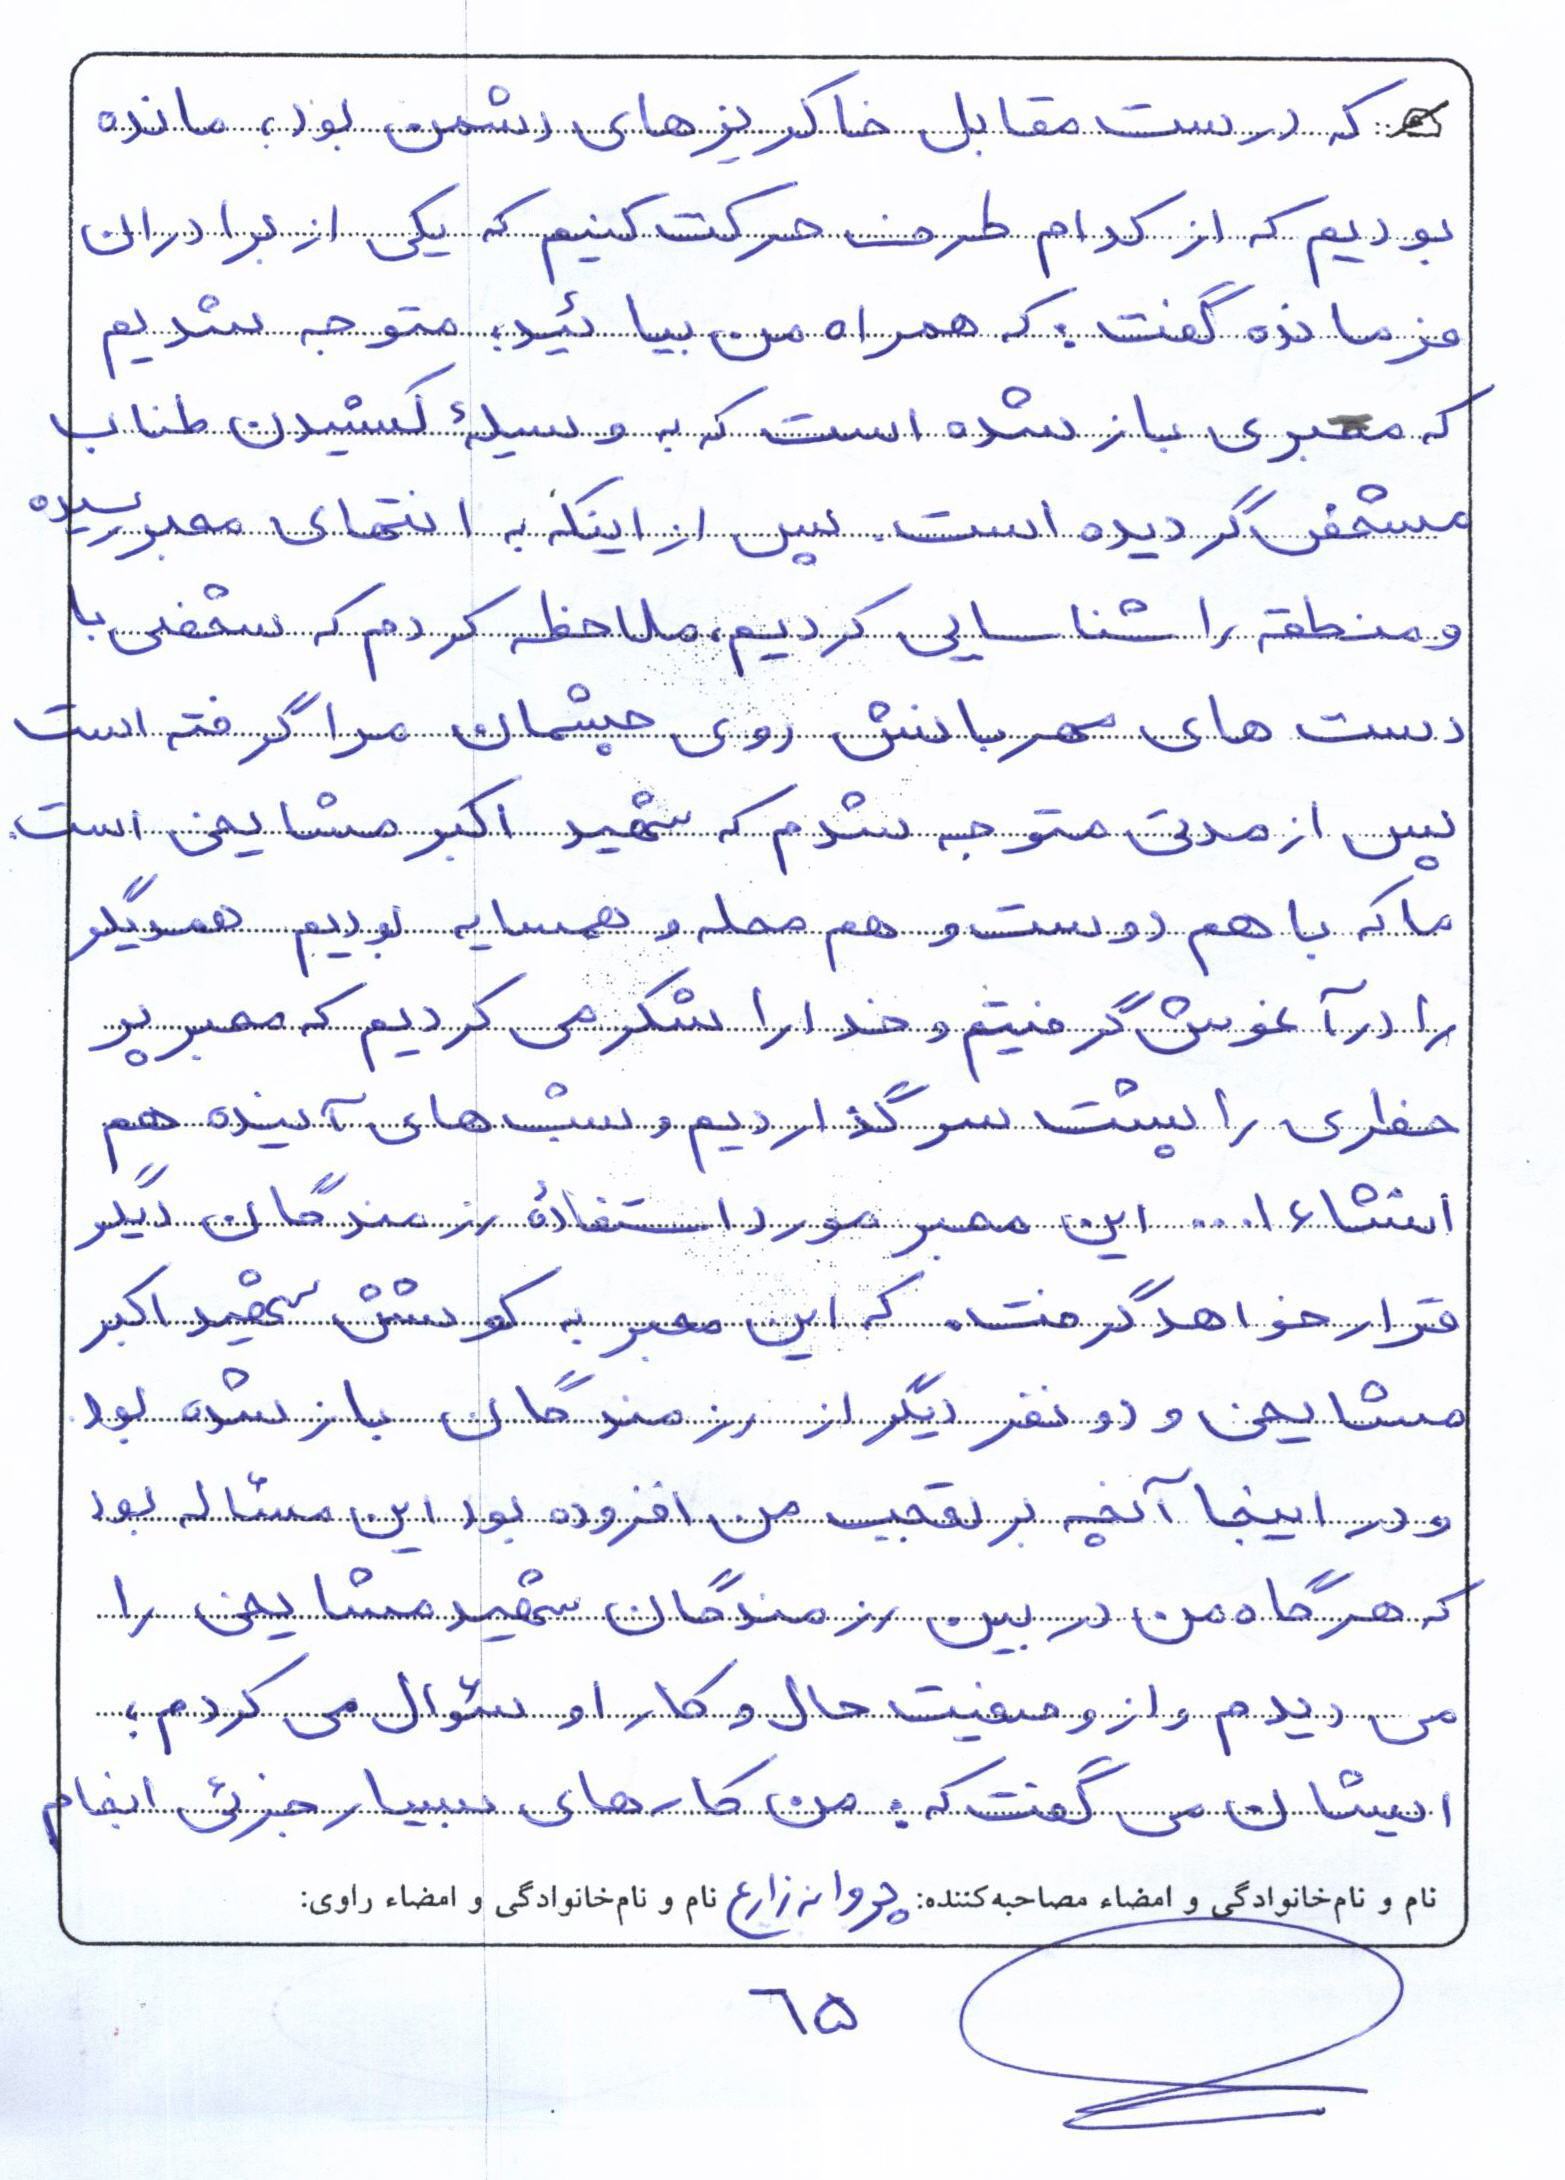 که درست مقابل خاکریزهای دشمن بود، مانده
بودیم که از کدام طرف حرکت کنیم که یکی از برادران
فرمانده گفت: که همراه من بیائید، متوجه شدیم
که معبری باز شده است که به وسیلهٔ کشیدن طناب
مشخص گردیده است. پس از اینکه به انتهای معبر رسیده
و منطقه را شناسایی کردیم، ملاحظه کردم که شخصی با
دست های مهربانش روی چشمان مرا گرفته است
پس از مدتی متوجه شدم که شهید اکبر مشایخی است.
ما که با هم دوست و هم محله و همسایه بودیم همدیگر
را در آغوش گرفتیم و خدا را شکر می کردیم که معبر پر
خطری را پشت سر گذاردیم و شب های آینده هم
انشاءا... این معبر مورد استفادهٔ رزمندگان دیگر
قرار خواهد گرفت. که این معبر به کوشش شهید اکبر
مشایخی و دو نفر دیگر از رزمندگان باز شده بود.
و در اینجا آنچه بر تعجب من افزوده بود این مسئاله بود
که هرگاه من در بین رزمندگان شهید مشایخی را
می دیدم و از وضعیت حال و کار او سئوال می کردم؛
ایشان می گفت که: من کارهای بسیار جزئی انجام
نام و نام‌خانوادگی و امضاء مصاحبه‌کننده: پروانه زارع نام و نام‌خانوادگی و امضاء راوی:
٦۵